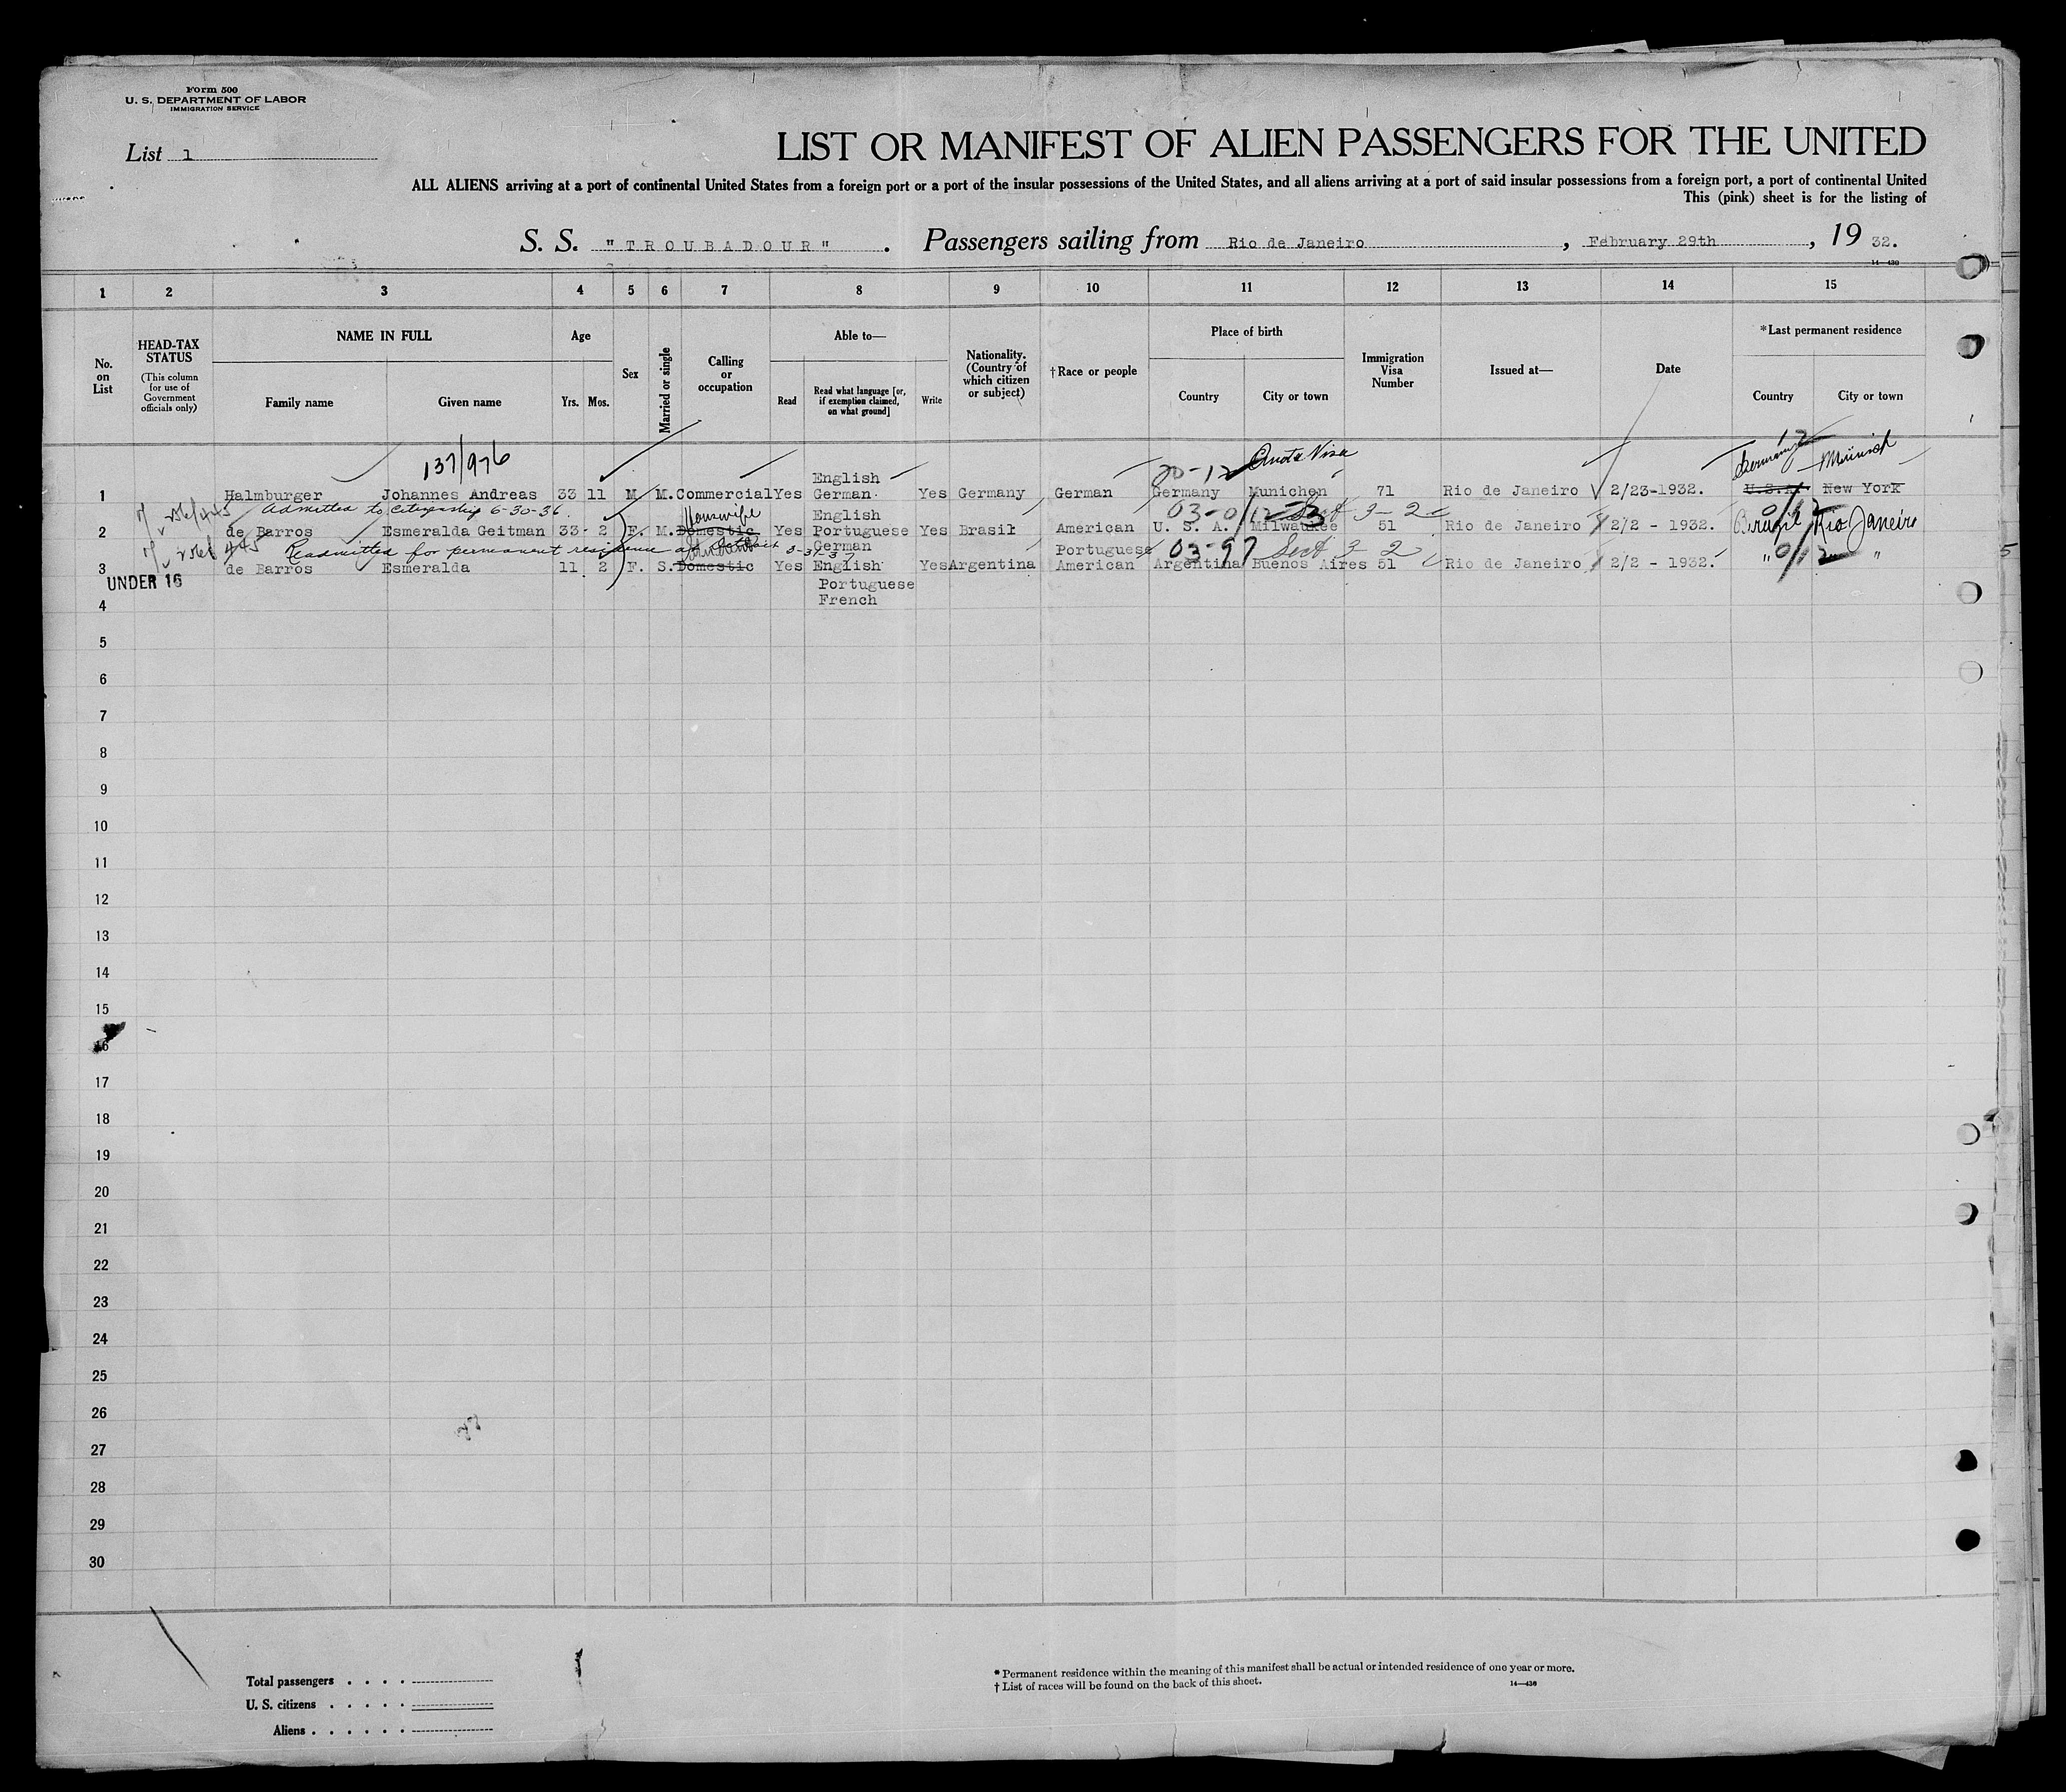 Form 500
U. S. DEPARTMENT OF LABOR
IMMIGRATION SERVICE
List 1
LIST OR MANIFEST OF ALIEN PASSENGERS FOR THE UNITED
ALL ALIENS arriving at a port of continental United States from a foreign port or a port of the insular possessions of the United States, and all aliens arriving at a port of said insular possessions from a foreign port, a port of continental United
This (pink) sheet is for the listing of
S. S. "TROUBADOUR". Passengers sailing from Rio de Janeiro, February 29th, 19 32.
14—430
1 2 3 4 5 6 7 8 9 10 11 12 13 14 15
No. on List
HEAD-TAX STATUS (This column for use of Government officials only)
NAME IN FULL Family name Given name
Age Yrs. Mos.
Sex
Married or single
Calling or occupation
Able to— Read Read what language [or, if exemption claimed, on what ground] Write
Nationality. (Country of which citizen or subject)
†Race or people
Place of birth Country City or town
Immigration Visa Number
Issued at—
Date
*Last permanent residence Country City or town
137/976 20-12 Quota Visa 12 Germany Munich
1 Halmburger Johannes Andreas 33 11 M M. Commercial Yes English German Yes Germany German Germany Munichen 71 Rio de Janeiro 2/23-1932. U.S.A. New York
Admitted to citizenship 6-30-36. Housewife 03-0/12 Sect 3-2
2 de Barros Esmeralda Geitman 33 2 F. M. Domestic Yes English Portuguese German Yes Brasil American U. S. A. Milwaukee 51 Rio de Janeiro 2/2 - 1932. Brazil Rio Janeiro
Readmitted for permanent residence at Detroit 3-31-37 03-97 Sect 3-2
3 de Barros Esmeralda 11 2 F. S. Domestic Yes English Portuguese French Yes Argentina Portuguese American Argentina Buenos Aires 51 Rio de Janeiro 2/2 - 1932. " "
UNDER 16
4
5
6
7
8
9
10
11
12
13
14
15
16
17
18
19
20
21
22
23
24
25
26
27
28
29
30
Total passengers
U. S. citizens
Aliens
* Permanent residence within the meaning of this manifest shall be actual or intended residence of one year or more.
† List of races will be found on the back of this sheet.
14—430